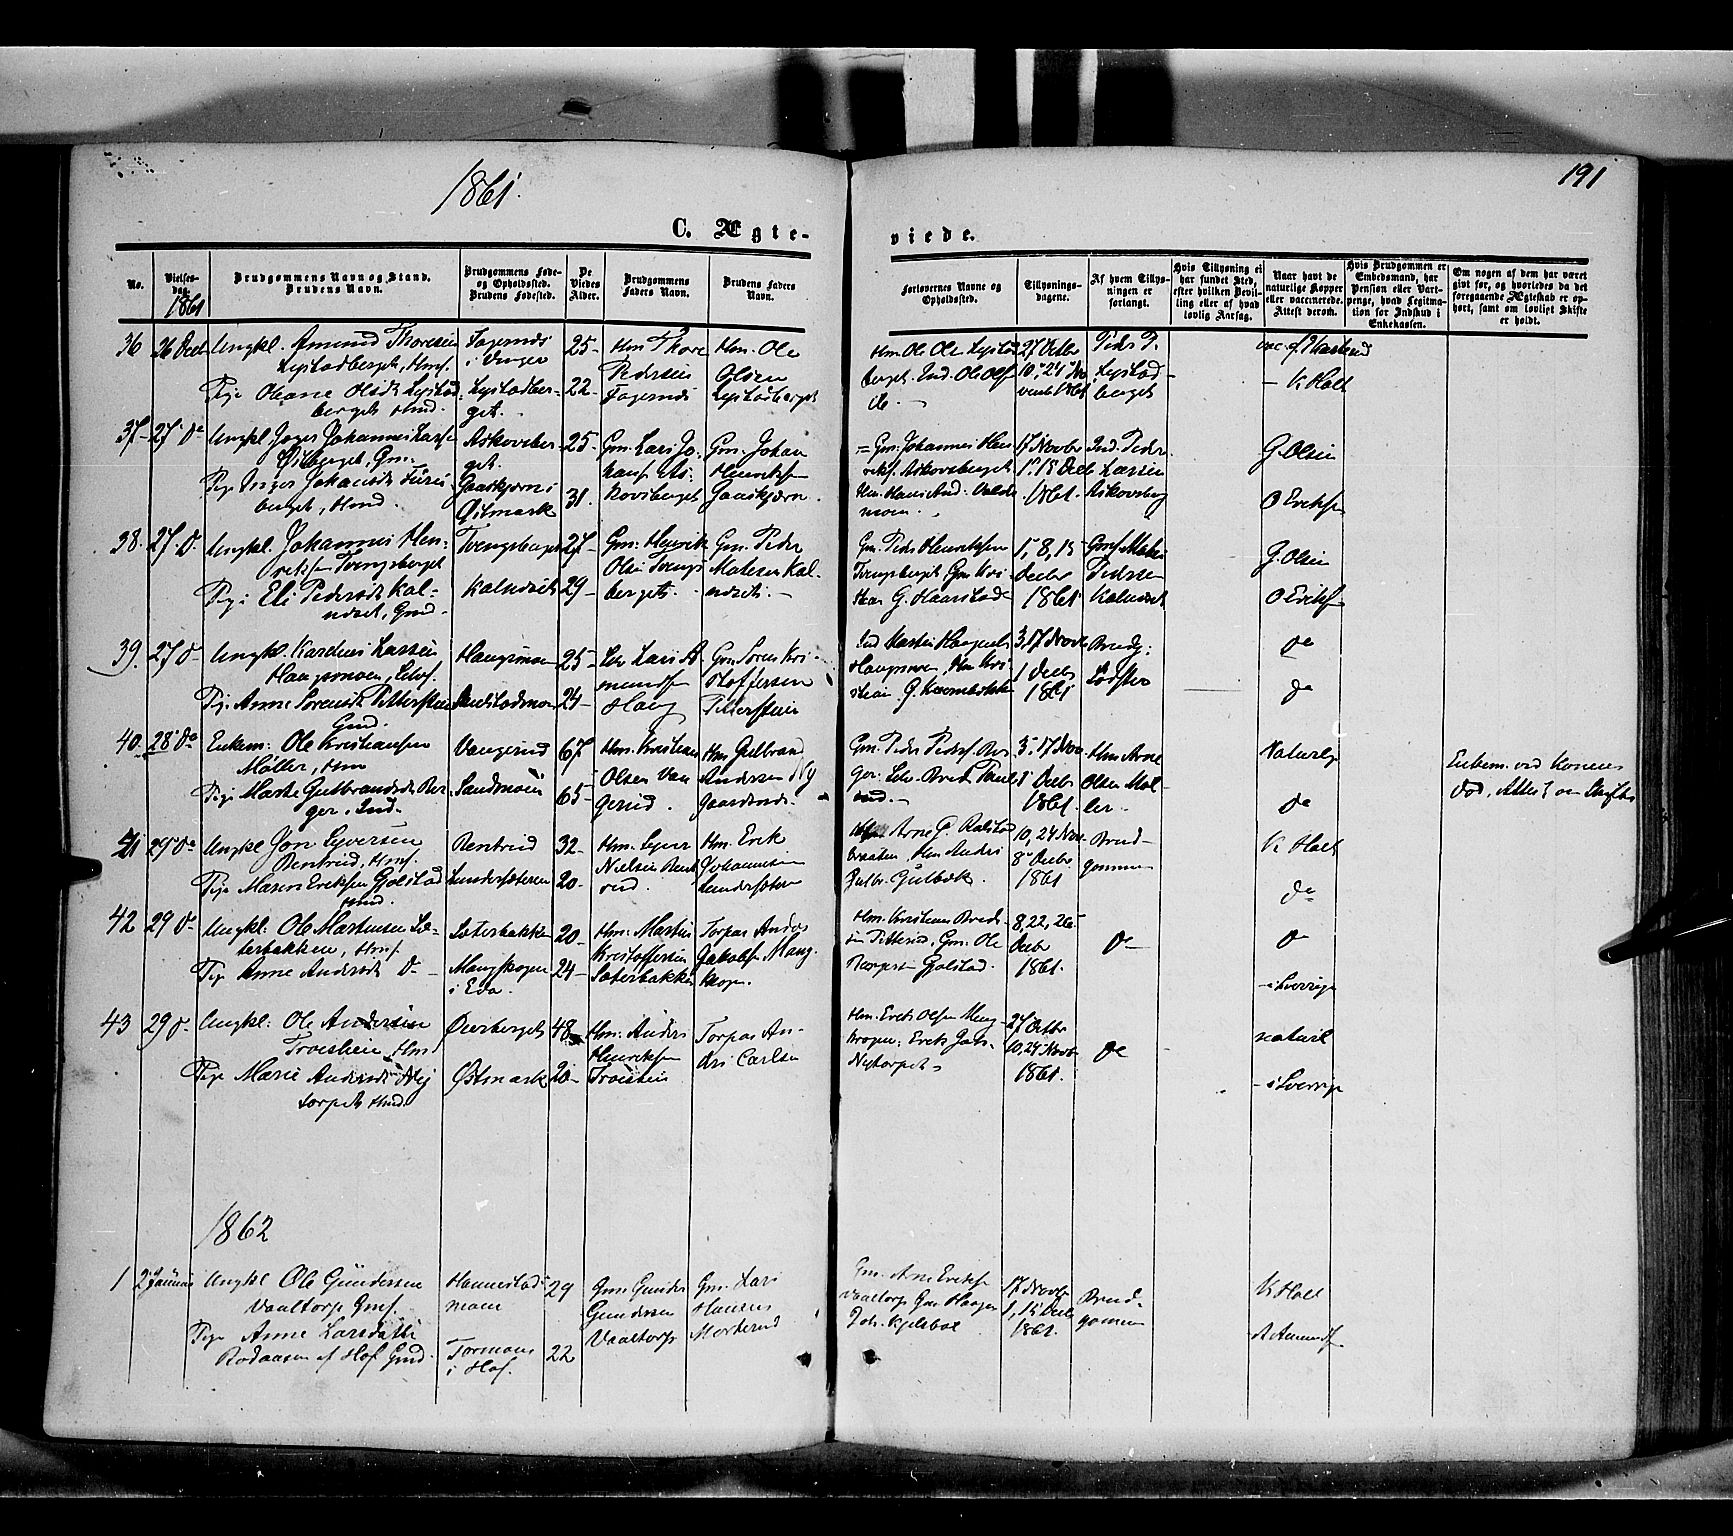 1861.
191
C. Ægte-
viede.
No.
Vielses-
dag.
1861
Brudgommens Navn og Stand.
Brudens Navn.
Brudgommens Føde-
og Opholdsted.
Brudens Fødested.
De
Viedes
Alder.
Brudgommens
Faders Navn.
Brudens Faders
Navn.
Forlovernes Navne og
Opholdssted.
Tillysnings-
dagene.
Af hvem Tillys-
ningen er
forlangt.
Hvis Tillysning ei
har fundet Sted,
efter hvilken Bevil-
ling eller af hvad
lovlig Aarsag.
Naar havt de
naturlige Kopper
eller vaccinerede.
Attest derom.
Hvis Brudgommen er
Embedsmand, har
Pension eller Vart-
penge, hvad Legitima-
tion for Indskud i
Enkekassen.
Om nogen af dem har været
gift før, og hvorledes da det
foregaaende Ægteskab er op-
hørt, samt om lovligt Skifte
er holdt.
36 26 Decb Ungkl. Amund Thoresen
Lystadberget, Hmf.
Pige Oleane Olsdt Lystad
berget Hmd.
Fagernæs
i Vinger
Lystadber-
get.
25-
22-
Hm. Thore
Pedersen
Fagernæs
Hm. Ole
Olsen
Lystadberget
Hm. Ole Olsen Lystad
berget. Ind. Ole Ols
27 Octbr
10, 24 No
vembr 1861
Peder P.
Lystad-
berget
- K Holt
37- 27 de Ungkl. Johannes Lars
Gm.
Pige Inger Johansdt
berget, Hmd.
Askovsber
get.
Gaaskjærn i
Østmark
25-
31.
Gm. Lars Jo-
hans As-
kovsberget
Gm. Johan
Henriks
Gaaskjærn.
Gm. Johannes Hen
riks. Askovsberget
Hm. Hans And.
moen.
17 Novbr
1, 15 Decb
1861.
Ind. Peder
Larsen
Askovsberg
G. Olsen
O Eriks
38. 27 d. Ungkl. Johannes Hen-
riks Tvengsberget
Pige Eli Pedersdt Kal-
næset, Gmd.
Tvengsberget
Kalneset
27-
29-
Gm. Henrik
Olsen Tvengs
berget.
Gm. Peder
Matesen Kal-
næset.
Gm. Peder Henriksen
Tvengsberget Gm. Kri
stian G. Haarstad
1, 8, 15
Decbr
1861
Gmf. Mates
Pedersen
Kalneset
G. Olsen
O Eriks
39. 27 d Ungkl. Karelius Larsen
Haugsmoen,
Pige Anne Sørensdt Pettersteen
Gmd.
Haugsmoen
25-
24-
Lars A
munds
Haug
Gm. Søren Kri-
stoffersen
Pettersteen
Ind Martin Haagens
Haugsmoen, Hm Kri
stian G.
3, 17 Novb
1 Decbr
1861
Brudg:
Lødster
de
de
40. 28 de Enkem: Ole Kristiansen
Møller, Hm
Pige Marte Gulbrandsdt Ber-
ger. Ind.
Vangerud
Sandmoen
67
65-
Hm. Kristian
Olsen Van
gerud.
Hm Gulbrand
Andersen Ny
gaardsæd.
Gm. Peder Peders. Ber
ger.
3, 17 Nov
1 Decbr
1861
Hm Arne
Olsen Møl-
ler.
Naturlig
de
Enkem. ved Konens
Død, Attest om Skifte
41 29 de Ungkl Jon Syversen
Rentrud, Hmf.
Pige Maren Eriksen Gjølstad
Hmd.
Rentrud
Lundersæteren
32-
20-
Hm. Syver
Nielsen Rent
rud.
Hm. Erik
Johannesen
Lundersæteren
Arne P. Rolstad
braaten, Hm Anders
Gulbr. Gulbæk.
10, 24 Nov.
8 Decbr
1861
Brud-
gommen
K Holt
de
42 29 d- Ungkl: Ole Martinsen Sæ-
terbakken, Hmf.
Pige Anne Andersdt de -
Sæterbakken
Mangskogen
i Eda.
20-
24-
Hm. Martin
Kristoffersen
Sæterbakken
Torpar Anders
Jakobsen Mang-
skogen.
Hm. Kristian
Petterud, Gm. Ole
Gjølstad.
8, 22, 26
Decbr
1861.
de -
de
- i Sverrige
43 29 d. Ungkl: Ole Andersen
Troestein Hm
Pige Marie Andersdt Nyj
torpet Hmd.
Øiersberget
Østmark
48
20-
Hm. Anders
Henriksen
Troestein
Torpar An-
ders Carlsen
Hm. Erik Olsen Mang
skogen: Erik Joh.
Nytorpet
27 Octbr
10, 24 Novb
1861.
de
naturl
- i Sverrige
1862
1 2 Januar Ungkl Ole Gundersen
Vaaltorp Gmf.
Pige Anne Larsdatter
Rodaasen af Hof Gmd.
Hannestad
moen
Tormoen
i Hof.
29
22
Gm. Gunder
Gundersen
Vaaltorp
Gm. Lars
Hansen
Morterud
Gm. Arne Eriks
Vaaltorp Gm Haagen
Joh. Kjelsbøl
17 Novbr
1, 15 Decb
1861.
Brud-
gommen
K Holt
A Amunds